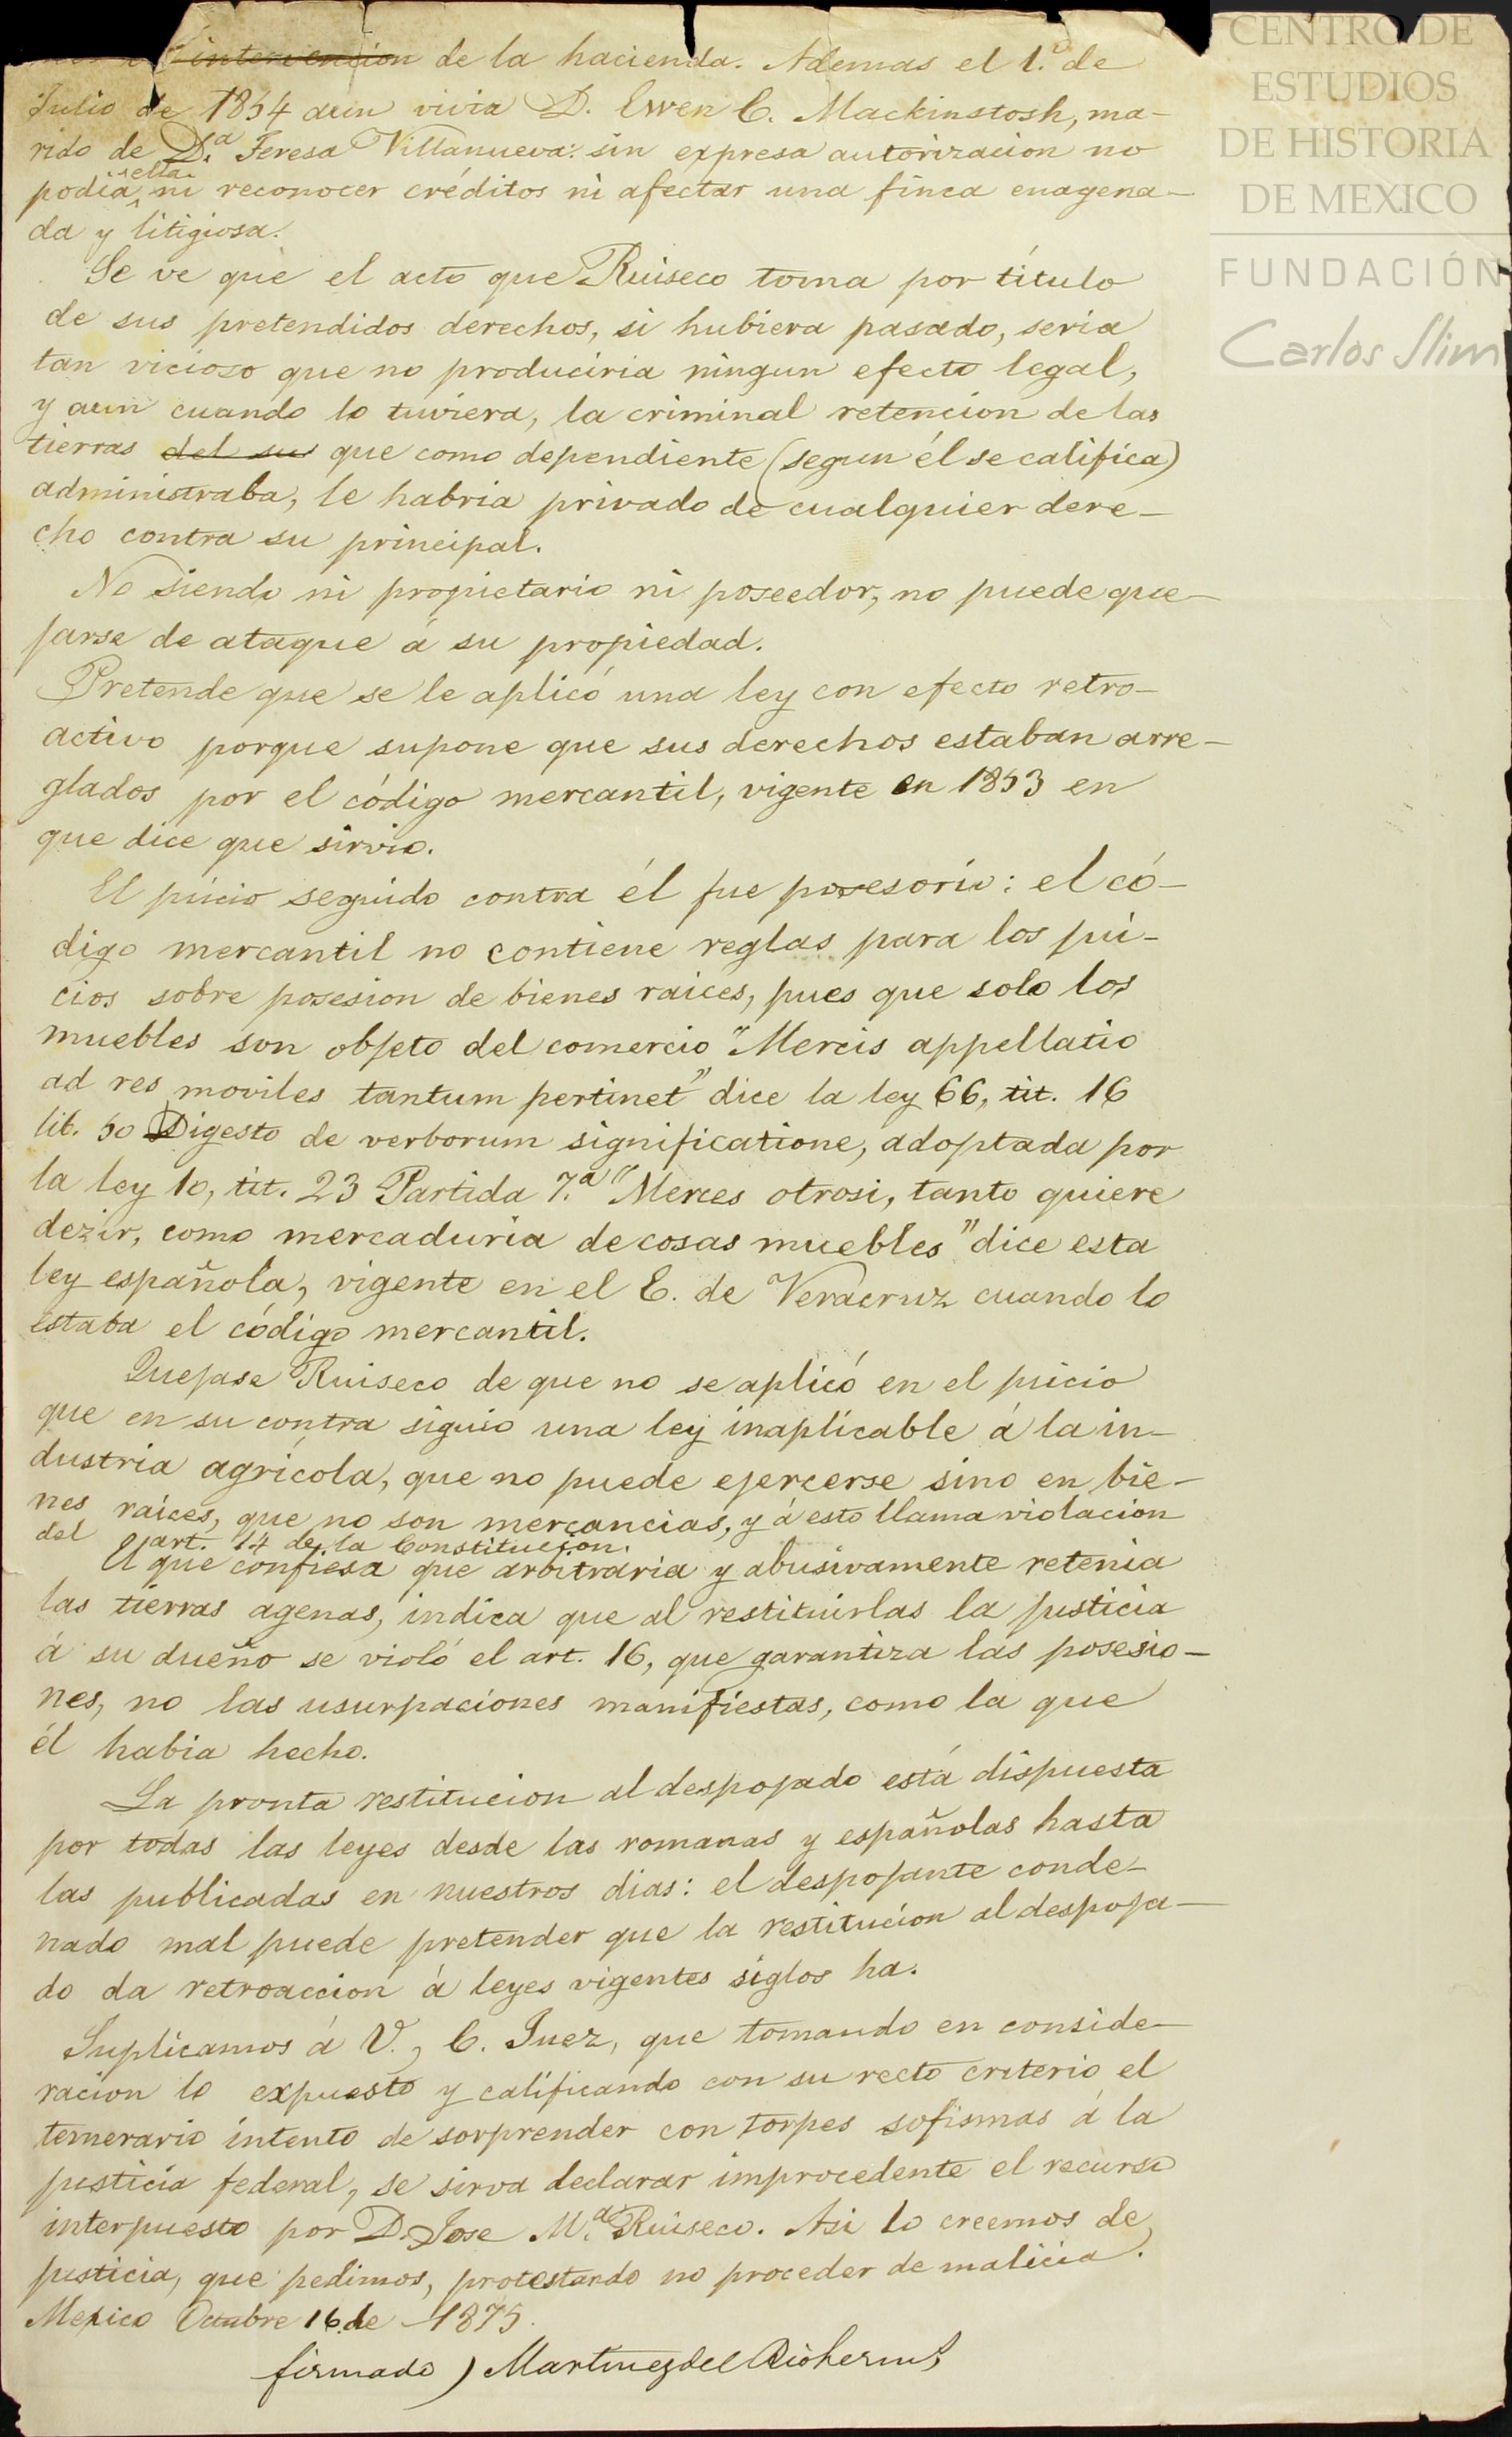 intervencion de la hacienda. Ademas el 1.º de
Julio de 1854 aun vivia D. Ewen C. Mackinstosh, ma-
rido de D.ª Teresa Villanueva: sin expresa autorizacion no
podia ella ni reconocer créditos ni afectar una finca enagena-
da y litigiosa.
Se ve que el acto que Ruiseco toma por título
de sus pretendidos derechos, si hubiera pasado, seria
tan vicioso que no produciria ningun efecto legal,
y aun cuando lo tuviera, la criminal retencion de las
tierras del su que como dependiente (segun él se califica)
administraba, le habria privado de cualquier dere-
cho contra su principal.
No siendo ni propietario ni poseedor, no puede que-
jarse de ataque á su propiedad.
Pretende que se le aplicó una ley con efecto retro-
activo porque supone que sus derechos estaban arre-
glados por el código mercantil, vigente en 1853 en
que dice que sirvio.
El juicio seguido contra él fue posesorio: el có-
digo mercantil no contiene reglas para los jui-
cios sobre posesion de bienes raices, pues que solo los
muebles son objeto del comercio "Mercis appellatio
ad res moviles tantum pertinet" dice la ley 66, tit. 16
lib. 50 Digesto de verborum significatione, adoptada por
la ley 10, tit. 23 Partida 7.ª "Merces otrosi, tanto quiere
dezir, como mercaduria de cosas muebles" dice esta
ley española, vigente en el E. de Veracruz cuando lo
estaba el código mercantil.
Quejase Ruiseco de que no se aplicó en el juicio
que en su contra siguio una ley inaplicable á la in-
dustria agrícola, que no puede ejercerse sino en bie-
nes raices, que no son mercancias, y á esto llama violacion
del art. 14 de la Constitucion.
El que confiesa que arbitraria y abusivamente retenia
las tierras agenas, indica que al restituirlas la justicia
á su dueño se violó el art. 16, que garantiza las posesio-
nes, no las usurpaciones manifiestas, como la que
él habia hecho.
La pronta restitucion al despojado está dispuesta
por todas las leyes desde las romanas y españolas hasta
las publicadas en nuestros dias: el despojante conde-
nado mal puede pretender que la restitucion al despoja-
do da retroaccion á leyes vigentes siglos ha.
Suplicamos á V., C. Juez, que tomando en conside-
racion lo expuesto y calificando con su recto criterio el
temerario intento de sorprender con torpes sofismas á la
justicia federal, se sirva declarar improcedente el recurso
interpuesto por D. Jose M.ª Ruiseco. Asi lo creemos de
justicia, que pedimos, protestando no proceder de malicia.
Mexico Octubre 16 de 1875.
firmado) Martinez del Rio herm.s
CENTRO DE
ESTUDIOS
DE HISTORIA
DE MEXICO
FUNDACIÓN
Carlos Slim